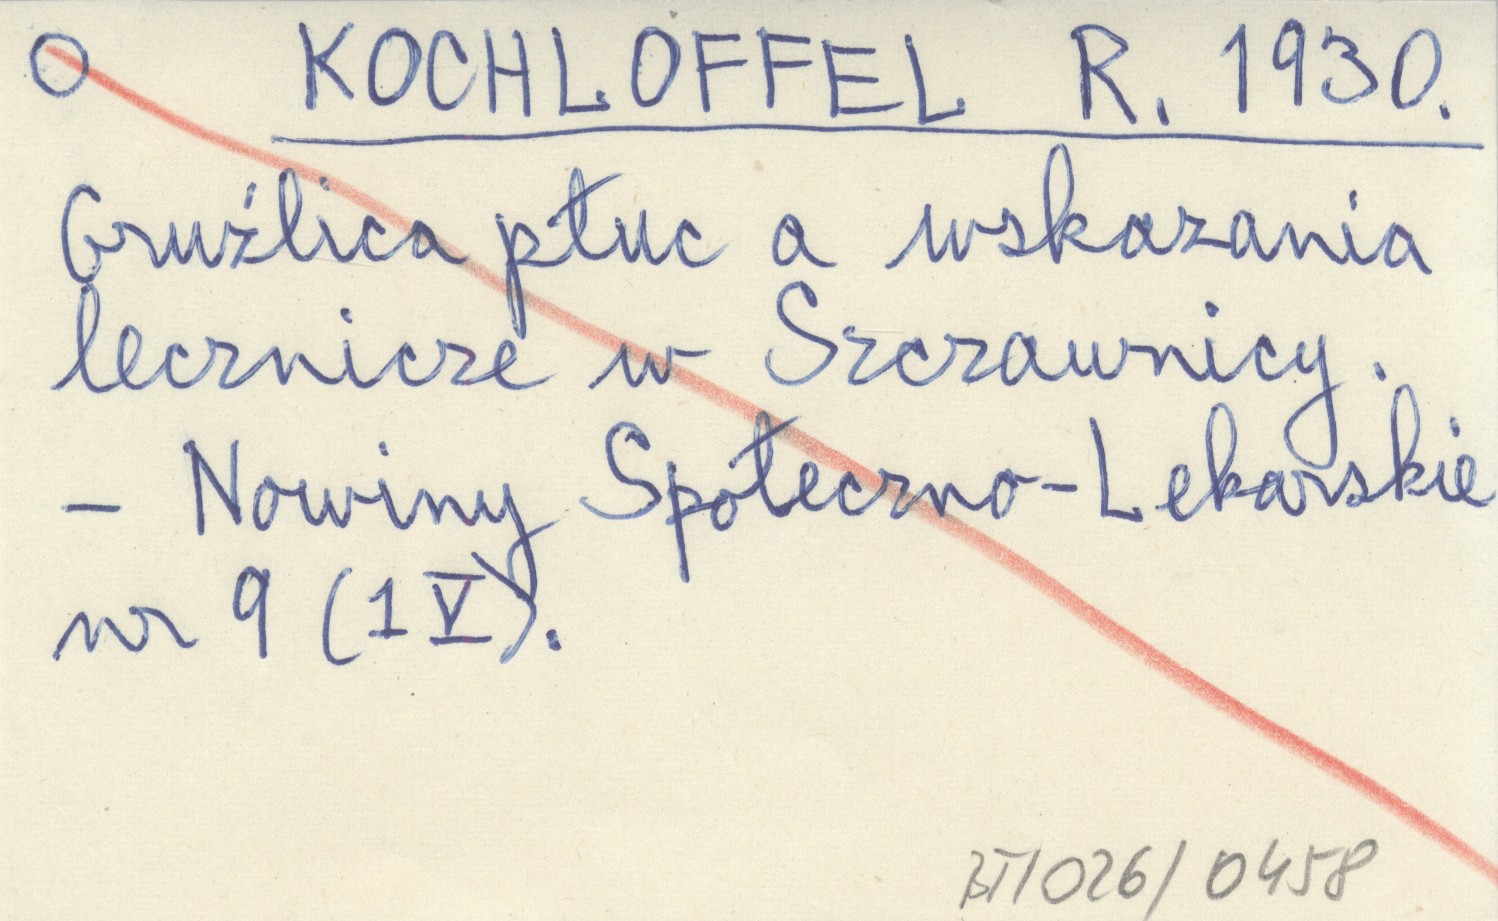 O KOCHLOFFEL R. 1930.
Gruźlica płuc a wskazania
lecznicze w Szczawnicy.
- Nowiny Społeczno-Lekarskie
nr 9 (1 V).
BT/026/0458